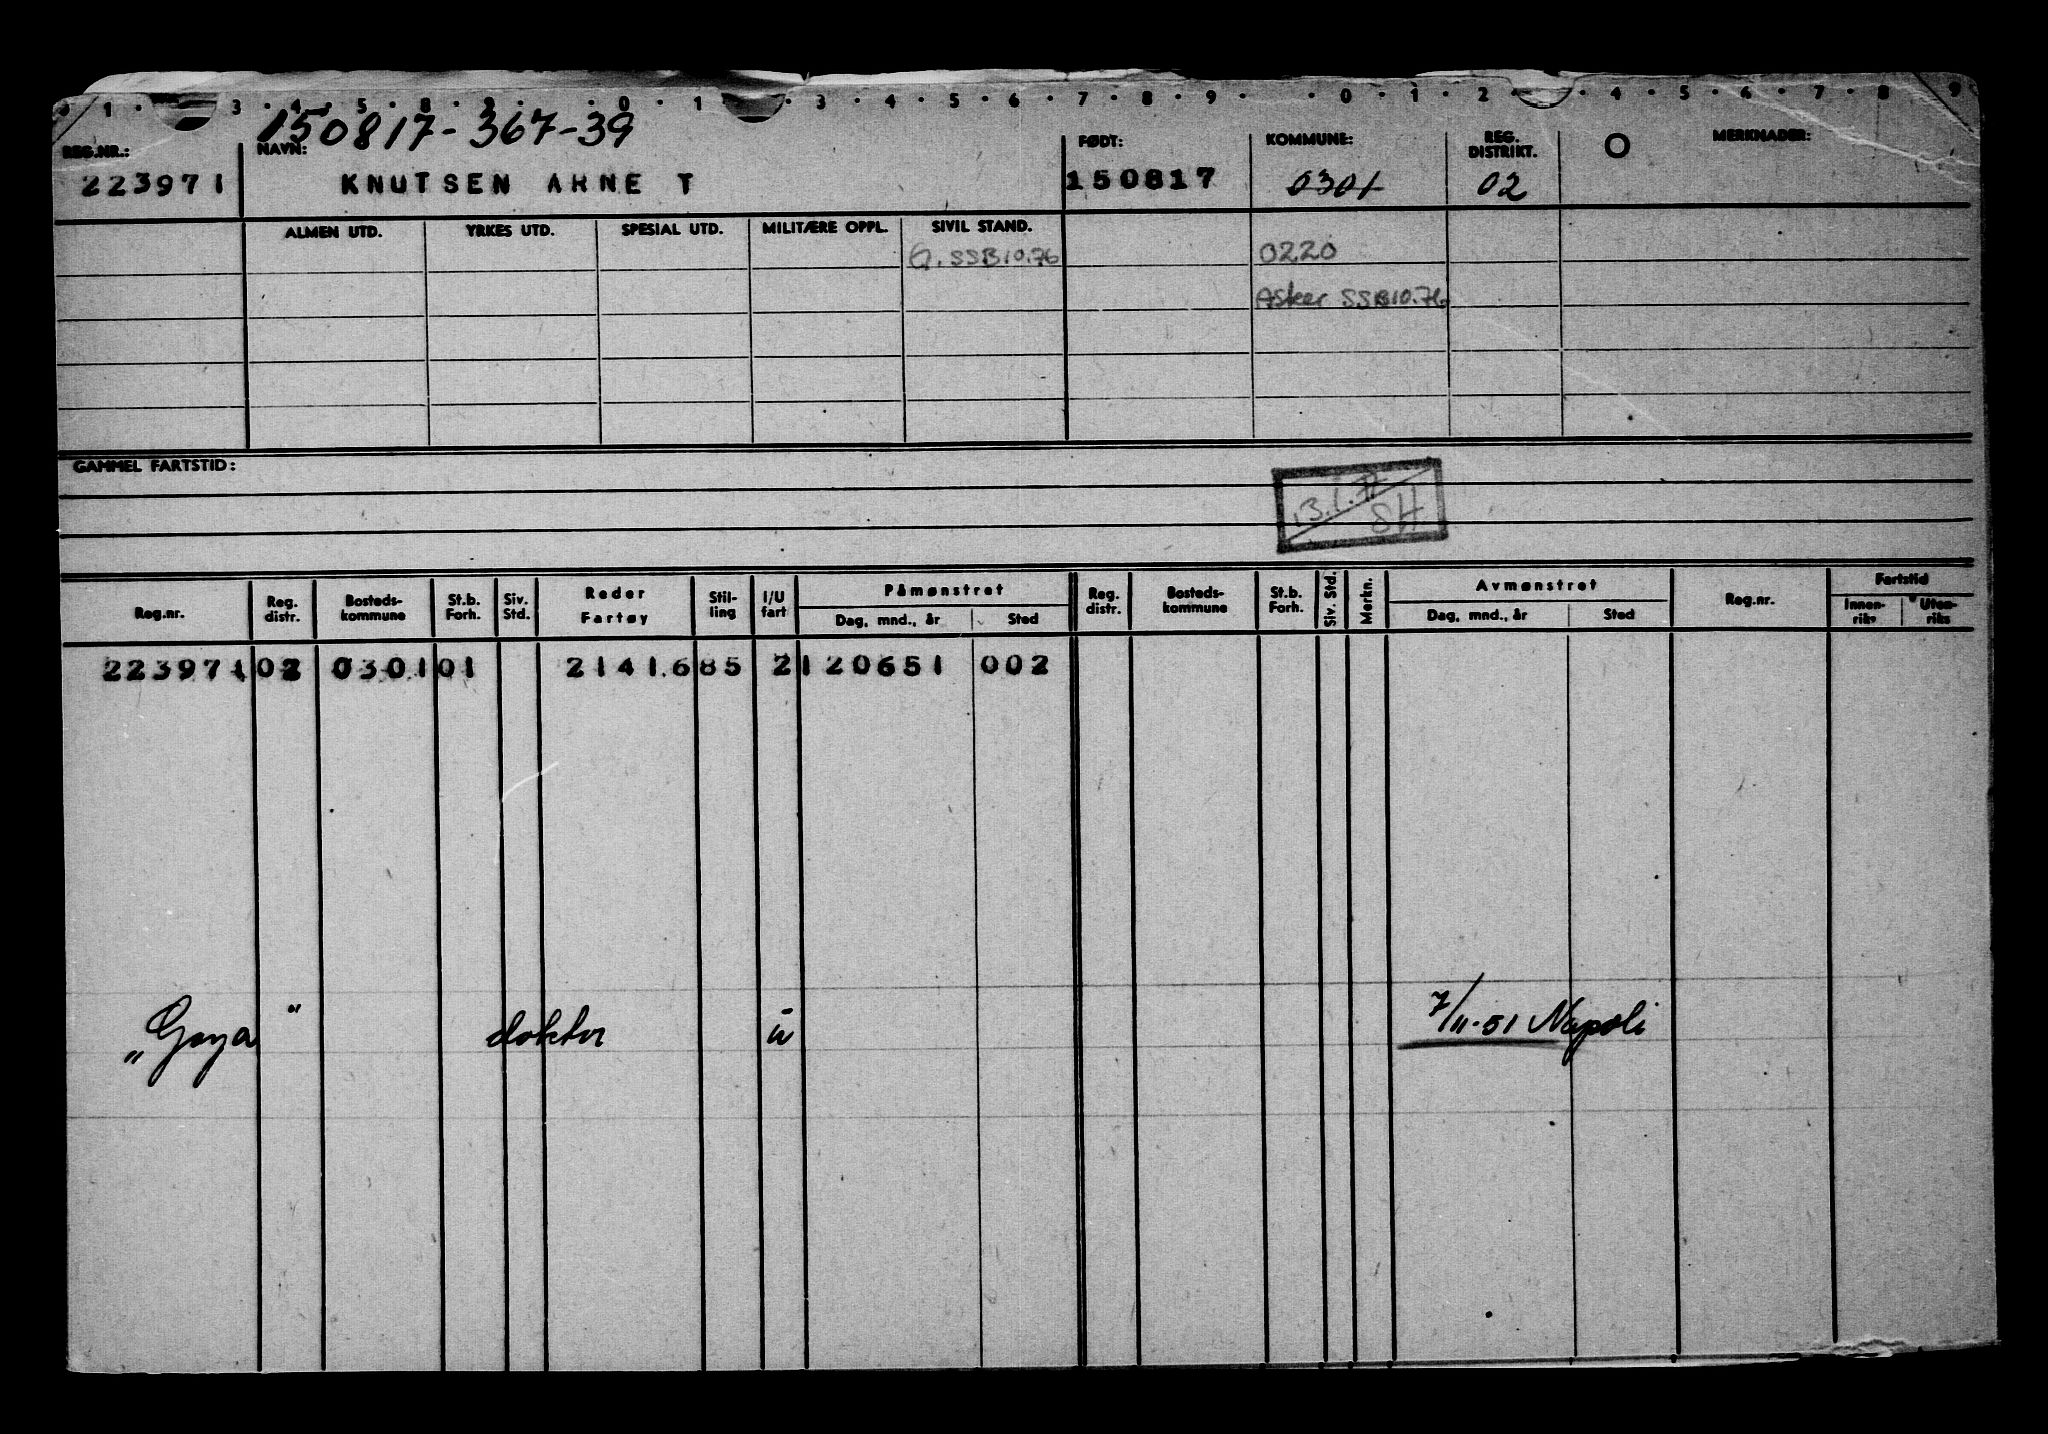 1 3 4 5 8 9 0 1 3 4 5 6 7 8 9 0 1 2 4 5 6 7 8 9
150817-367-39
REG.NR.: NAVN: FØDT: KOMMUNE: REG. DISTRIKT. O MERKNADER:
223971 KNUTSEN ARNE T 150817 0301 02
ALMEN UTD. YRKES UTD. SPESIAL UTD. MILITÆRE OPPL. SIVIL STAND.
G. SSB10.76 0220
Asker SSB10.76
GAMMEL FARTSTID:
13.1.77
SH
Reg.nr. Reg. distr. Bosteds-kommune St.b. Forh. Siv. Std. Reder Fartøy Stil-ling I/U fart Påmønstret Dag, mnd., år Sted Reg. distr. Bosteds-kommune St.b. Forh. Siv. Std. Merkn. Avmønstret Dag, mnd., år Sted Reg.nr. Fartstid Innen-riks Uten-riks
223971 02 0301 01 21416 85 2 120651 002
"Goya" doktor u 7/11-51 Napoli